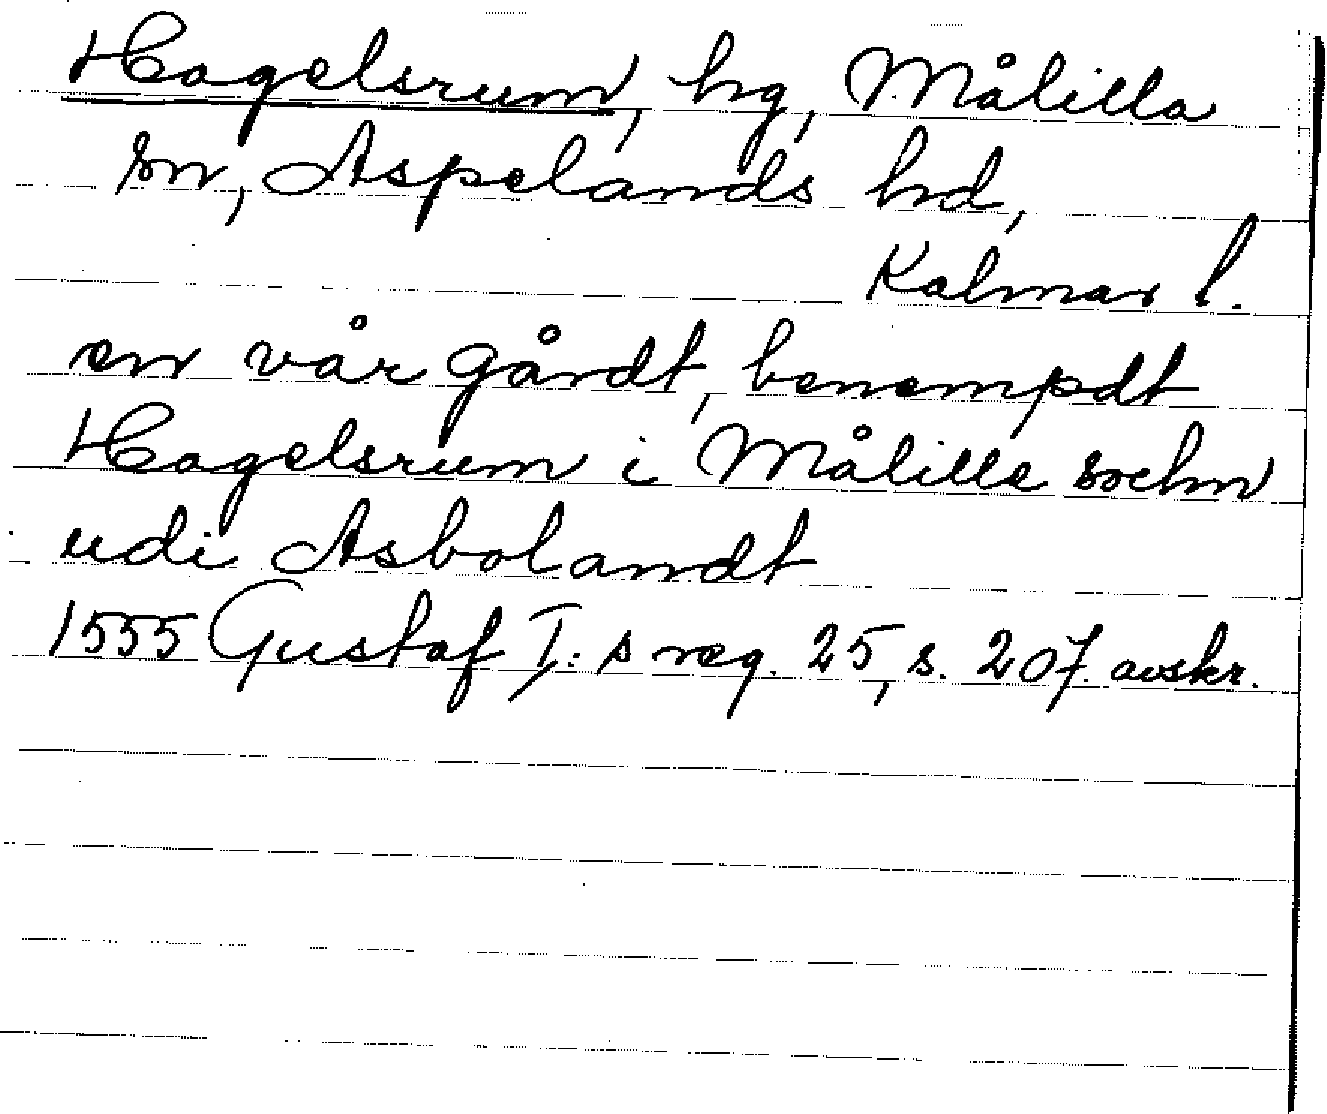 Hagelsrum, hg, Målilla
sn, Aspelands hd,
Kalmar l.
en vår gårdt, benempdt
Hagelsrum i Målille sochn
udi Asbolandt
1555 Gustaf I:s reg. 25, s. 207. avskr.